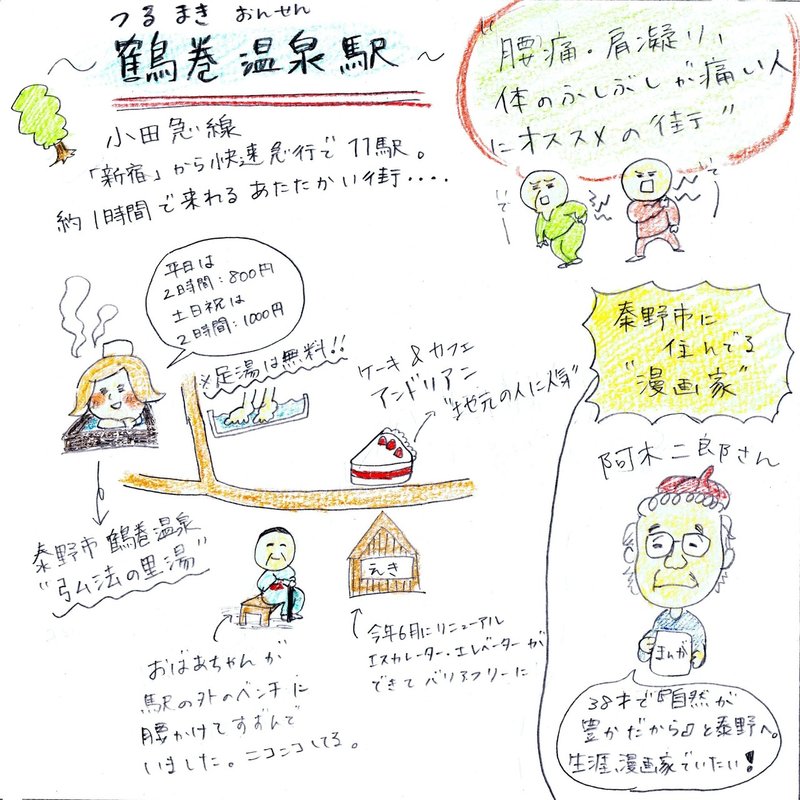 つるまきおんせん
～鶴巻温泉駅～
小田急線
「新宿」から快速急行で11駅。
約1時間で来れるあたたかい街‥‥
"腰痛・肩凝り、
体のふしぶしが痛い人
にオススメの街"
平日は
2時間:800円
土日祝は
2時間:1000円
※足湯は無料!!
ケーキ&カフェ
アンドリアン
"地元の人に人気"
秦野市 鶴巻温泉
"弘法の里湯"
えき
おばあちゃんが
駅の外のベンチに
腰かけてすずんで
いました。ニコニコしてる。
今年6月にリニューアル
エスカレーター・エレベーターが
できてバリアフリーに
秦野市に
住んでる
"漫画家"
阿木二郎さん
まんが
38才で『自然が
豊かだから』と秦野へ。
生涯、漫画家でいたい!